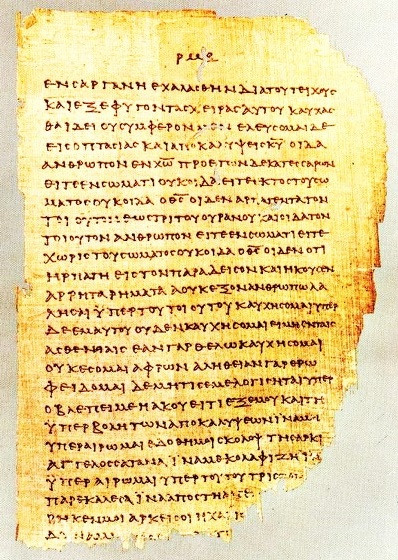 ΕΝ ΣΑΡΓΑΝΗ ΕΧΑΛΑΣΘΗΝ ΔΙΑ ΤΟΥ ΤΕΙΧΟΥΣ
ΚΑΙ ΕΞΕΦΥΓΟΝ ΤΑΣ ΧΕΙΡΑΣ ΑΥΤΟΥ ΚΑΥΧΑΣ
ΘΑΙ ΔΕΙ ΟΥ ΣΥΜΦΕΡΟΝ ΜΕΝ ΕΛΕΥΣΟΜΑΙ ΔΕ
ΕΙΣ ΟΠΤΑΣΙΑΣ ΚΑΙ ΑΠΟΚΑΛΥΨΕΙΣ ΚΥ ΟΙΔΑ
ΑΝΘΡΩΠΟΝ ΕΝ ΧΩ ΠΡΟ ΕΤΩΝ ΔΕΚΑΤΕΣΣΑΡΩΝ
ΕΙΤΕ ΕΝ ΣΩΜΑΤΙ ΟΥΚ ΟΙΔΑ ΕΙΤΕ ΕΚΤΟΣ ΤΟΥ ΣΩ
ΜΑΤΟΣ ΟΥΚ ΟΙΔΑ Ο ΘΣ ΟΙΔΕΝ ΑΡΠΑΓΕΝΤΑ ΤΟΝ
ΤΟΙΟΥΤΟΝ ΕΩΣ ΤΡΙΤΟΥ ΟΥΡΑΝΟΥ ΚΑΙ ΟΙΔΑ ΤΟΝ
ΤΟΙΟΥΤΟΝ ΑΝΘΡΩΠΟΝ ΕΙΤΕ ΕΝ ΣΩΜΑΤΙ ΕΙΤΕ
ΧΩΡΙΣ ΤΟΥ ΣΩΜΑΤΟΣ ΟΥΚ ΟΙΔΑ Ο ΘΣ ΟΙΔΕΝ ΟΤΙ
ΗΡΠΑΓΗ ΕΙΣ ΤΟΝ ΠΑΡΑΔΕΙΣΟΝ ΚΑΙ ΗΚΟΥΣΕΝ
ΑΡΡΗΤΑ ΡΗΜΑΤΑ Α ΟΥΚ ΕΞΟΝ ΑΝΘΡΩΠΩ ΛΑ
ΛΗΣΑΙ ΫΠΕΡ ΤΟΥ ΤΟΙΟΥΤΟΥ ΚΑΥΧΗΣΟΜΑΙ ΥΠΕΡ
ΔΕ ΕΜΑΥΤΟΥ ΟΥΔΕΝ ΚΑΥΧΗΣΟΜΑΙ ΕΙ ΜΗ ΕΝ ΤΑΙΣ
ΑΣΘΕΝΕΙΑΙΣ ΕΑΝ ΓΑΡ ΘΕΛΩ ΚΑΥΧΗΣΟΜΑΙ
ΟΥΚ ΕΣΟΜΑΙ ΑΦΡΩΝ ΑΛΗΘΕΙΑΝ ΓΑΡ ΕΡΩ
ΦΕΙΔΟΜΑΙ ΔΕ ΜΗ ΤΙΣ ΕΜΕ ΛΟΓΙΣΗΤΑΙ ΥΠΕΡ
Ο ΒΛΕΠΕΙ ΜΕ Η ΑΚΟΥΕΙ ΤΙ ΕΞ ΕΜΟΥ ΚΑΙ ΤΗ
ΫΠΕΡΒΟΛΗ ΤΩΝ ΑΠΟΚΑΛΥΨΕΩΝ ΪΝΑ ΜΗ
ΥΠΕΡΑΙΡΩΜΑΙ ΕΔΟΘΗ ΜΟΙ ΣΚΟΛΟΨ ΤΗ ΣΑΡΚΙ
ΑΓΓΕΛΟΣ ΣΑΤΑΝΑ ΪΝΑ ΜΕ ΚΟΛΑΦΙΖΗ ΪΝΑ
ΫΠΕΡΑΙΡΩΜΑΙ ΫΠΕΡ ΤΟΥΤΟΥ ΤΡΙΣ
ΠΑΡΕΚΑΛΕΣΑ ΪΝΑ ΑΠΟΣΤΗ
ΡΗΚΕΝ ΜΟΙ ΑΡΚΕΙ ΣΟΙ Η ΧΑΡΙΣ
ΔΥΝΑΜ